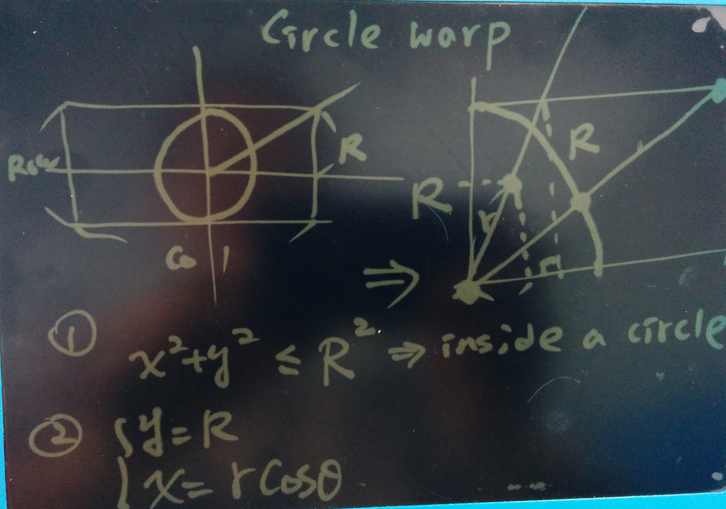 Circle warp
Row
R
Col
R
R
r
⇒
① x² + y² ≤ R² ⇒ inside a circle
② { y = R
x = r cosθ